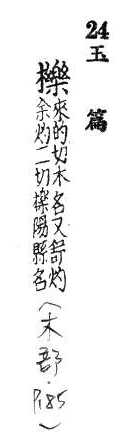 24 玉 篇
櫟 來的切木名又灼
余灼二切櫟陽縣名
(木部·P.185)